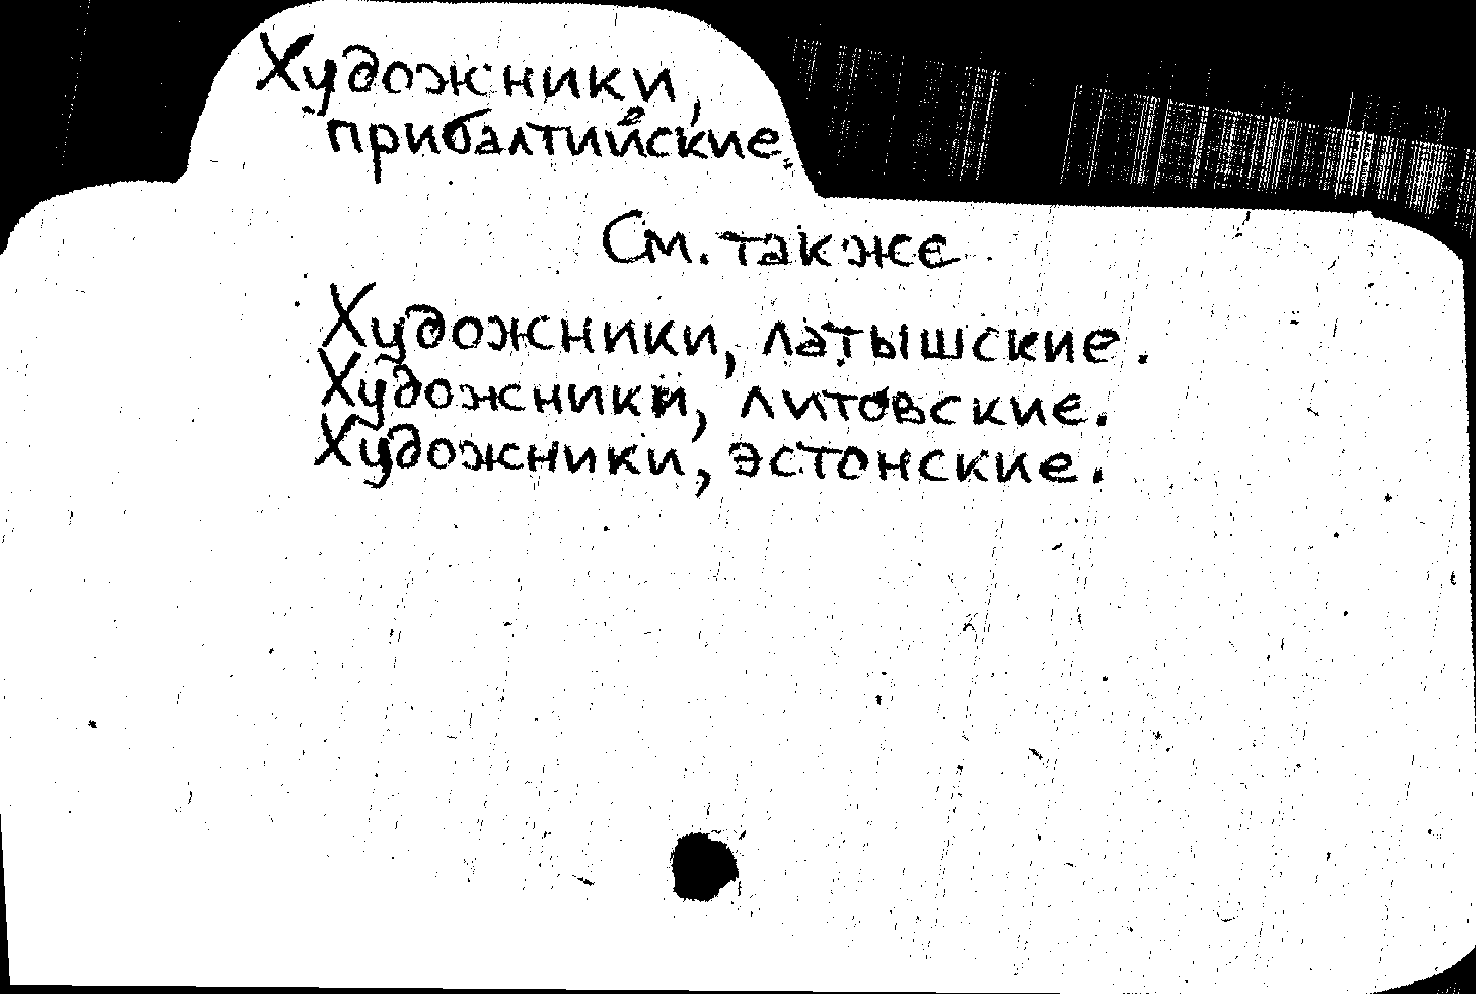 Художники,
прибалтийские.
См. также
Художники, латышские.
Художники, литовские.
Художники, эстонские.